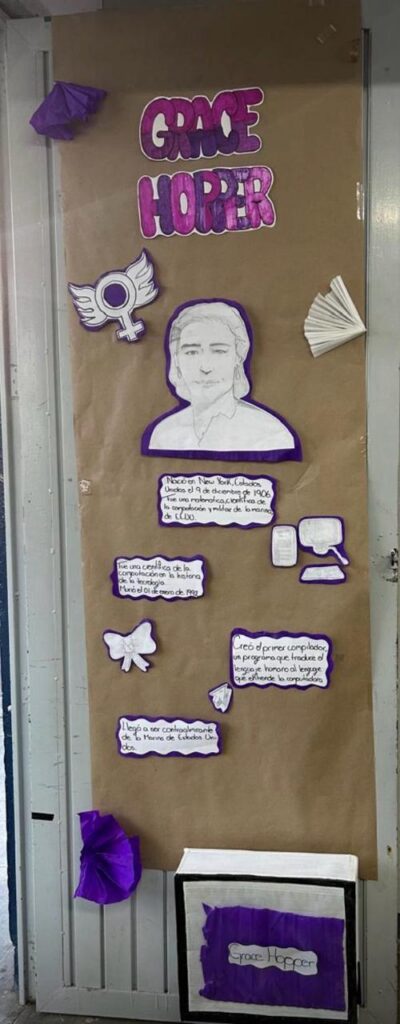 GRACE
HOPPER
Nació en New York, Estados
Unidos el 9 de diciembre de 1906
Fue una matemática, científica de
la computación y militar de la marina
de EE.UU.
Fue una científica de la
computación en la historia
de la tecnología.
Murió el 01 de enero de 1992
Creó el primer compilador,
un programa que traduce el
lenguaje humano al lenguaje
que entiende la computadora.
Llegó a ser contraalmirante
de la Marina de Estados Uni-
dos.
Grace Hopper